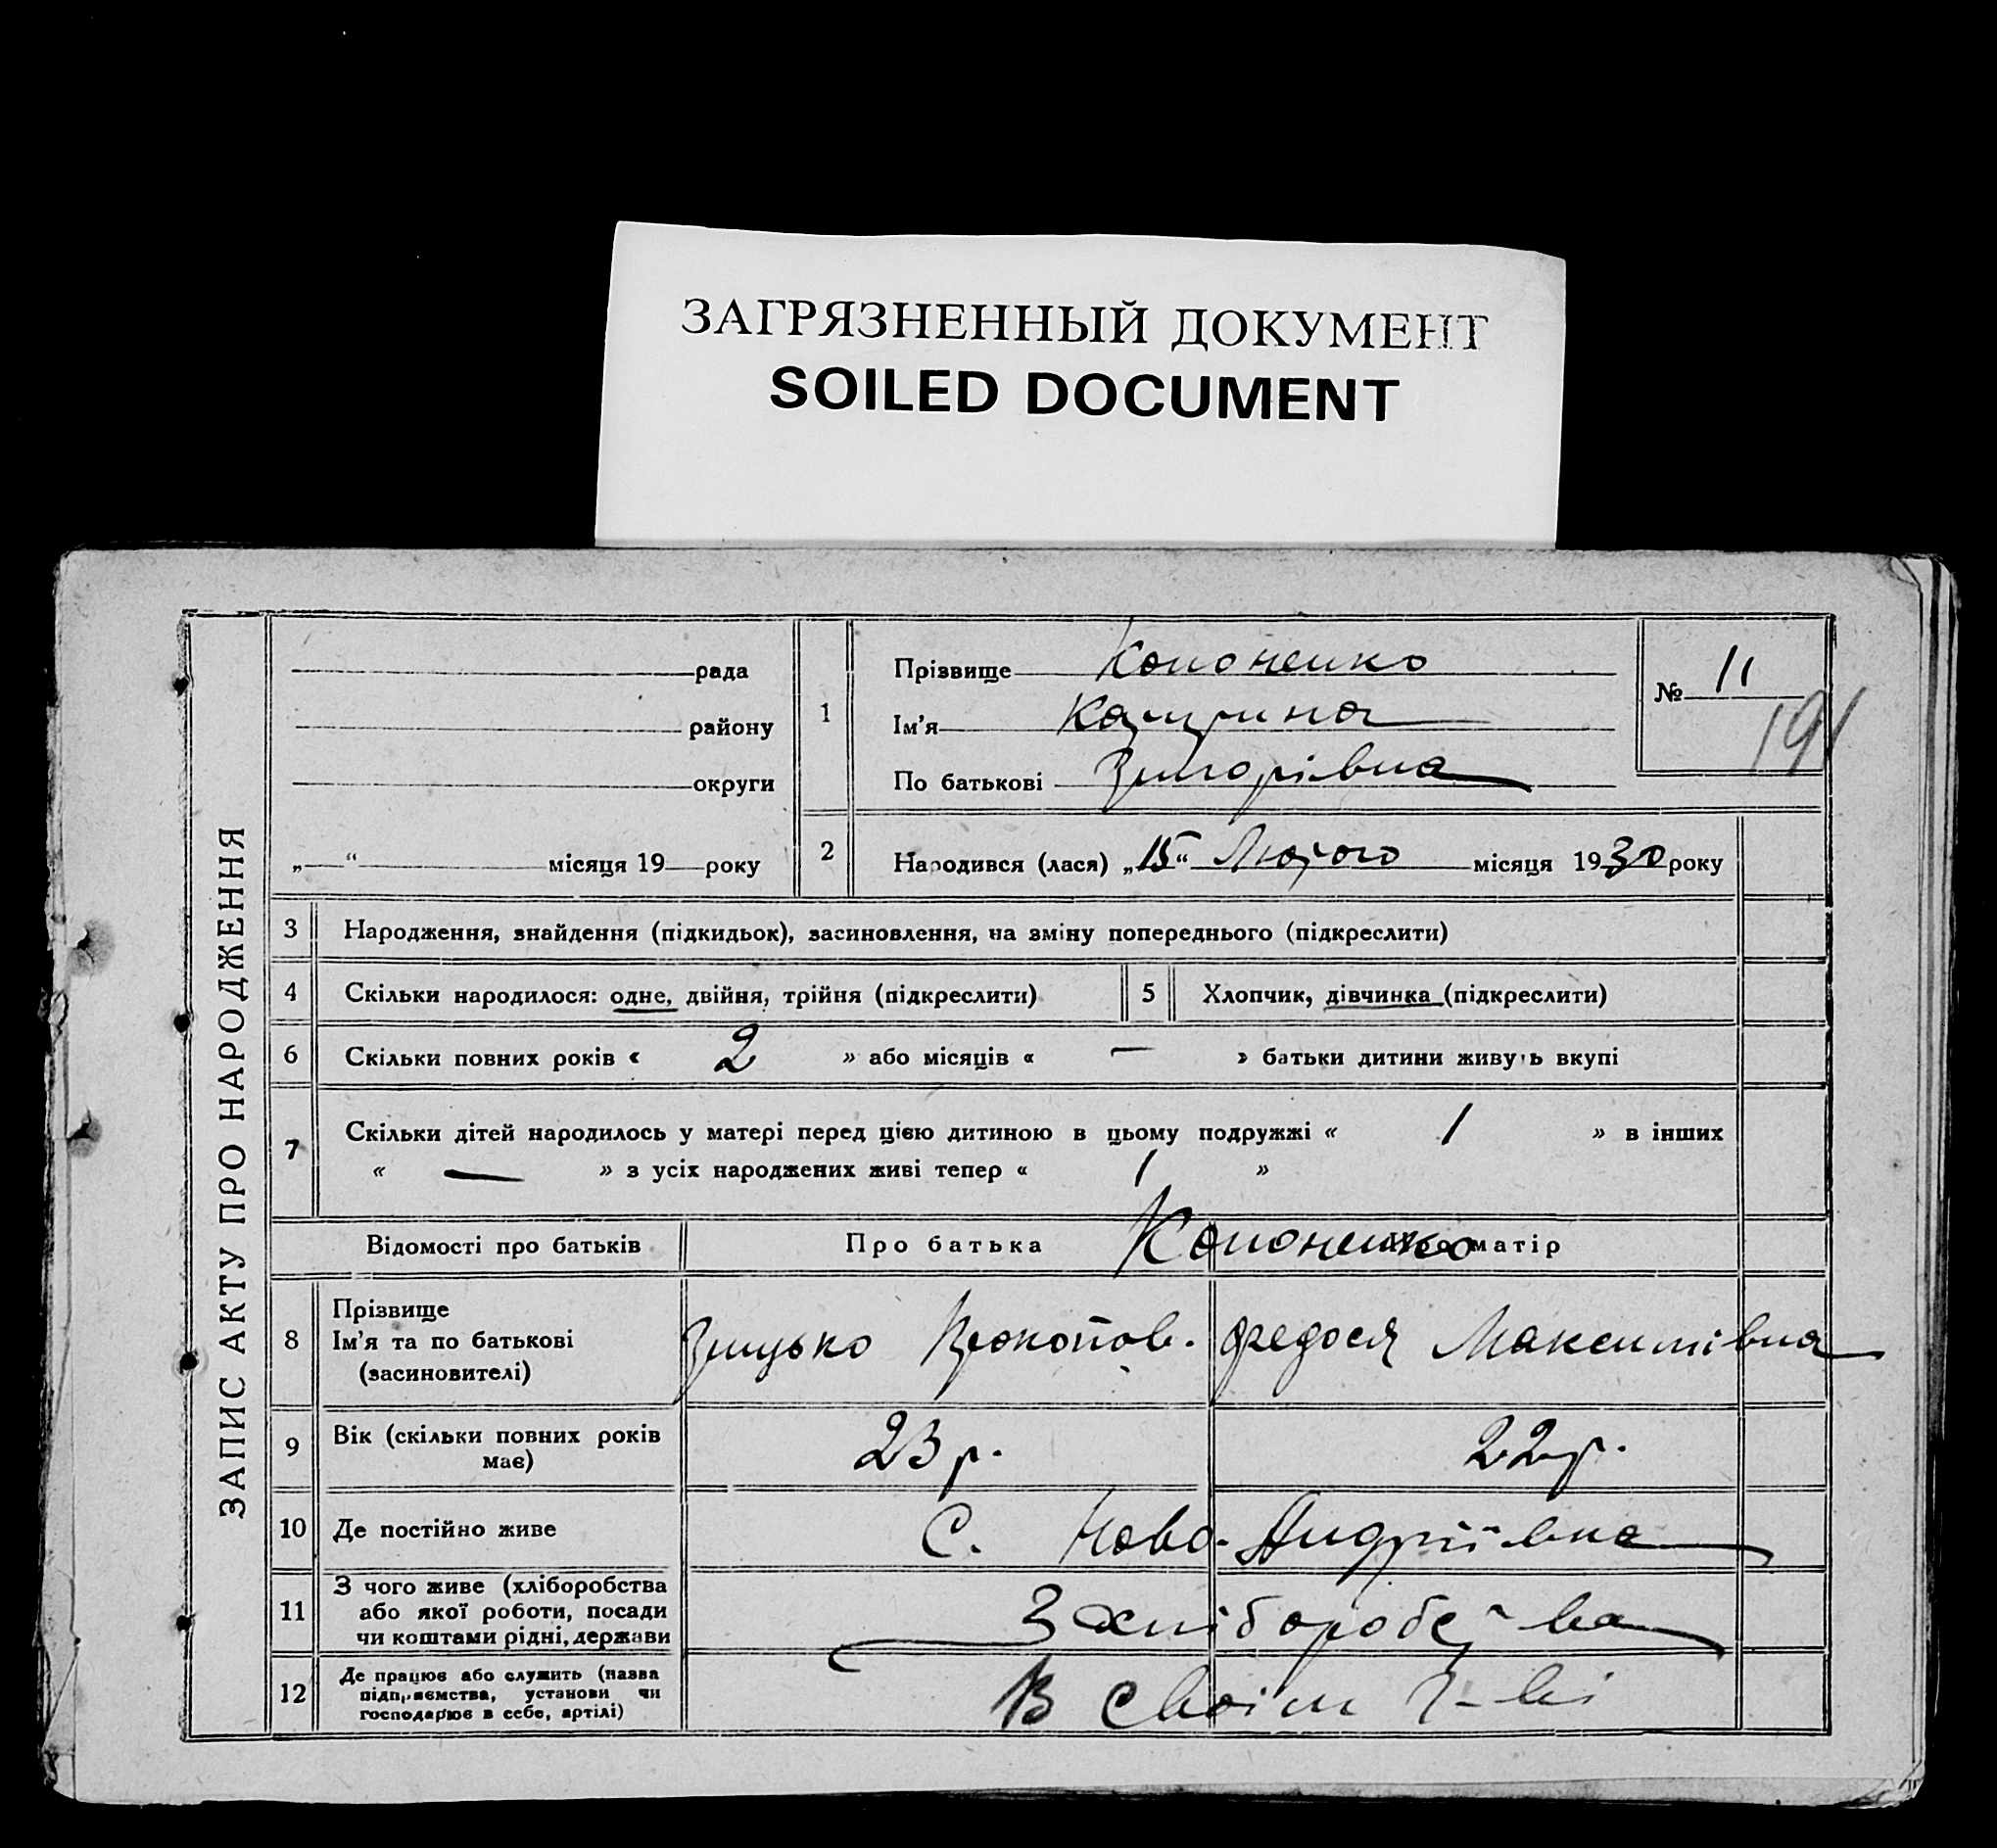 ЗАГРЯЗНЕННЫЙ ДОКУМЕНТ
SOILED DOCUMENT
ЗАПИС АКТУ ПРО НАРОДЖЕННЯ
рада
району
округи
„ “ місяця 19 року
1
Прізвище Кононенко
Ім’я Катрина
По батькові Григорівна
№ 11
191
2 Народився (лася) „15“ Лютого місяця 1930 року
3 Народження, знайдення (підкидьок), засиновлення, на зміну попереднього (підкреслити)
4 Скільки народилося: одне, двійня, трійня (підкреслити) 5 Хлопчик, дівчинка (підкреслити)
6 Скільки повних років « 2 » або місяців « — » батьки дитини живуть вкупі
7 Скільки дітей народилось у матері перед цією дитиною в цьому подружжі « 1 » в інших
« — » з усіх народжених живі тепер « 1 »
Відомості про батьків Про батька Про матір
Кононенко
8 Прізвище
Ім’я та по батькові
(засиновителі)
Грицько Прокопов. Федося Максимівна
9 Вік (скільки повних років
має)
23 р. 22 р.
10 Де постійно живе С. Ново-Андріївка
11 З чого живе (хліборобства
або якої роботи, посади
чи коштами рідні, держави
З хліборобства
12 Де працює або служить (назва
підприємства, установи чи
господарює в себе, артілі)
В своїм г-ві